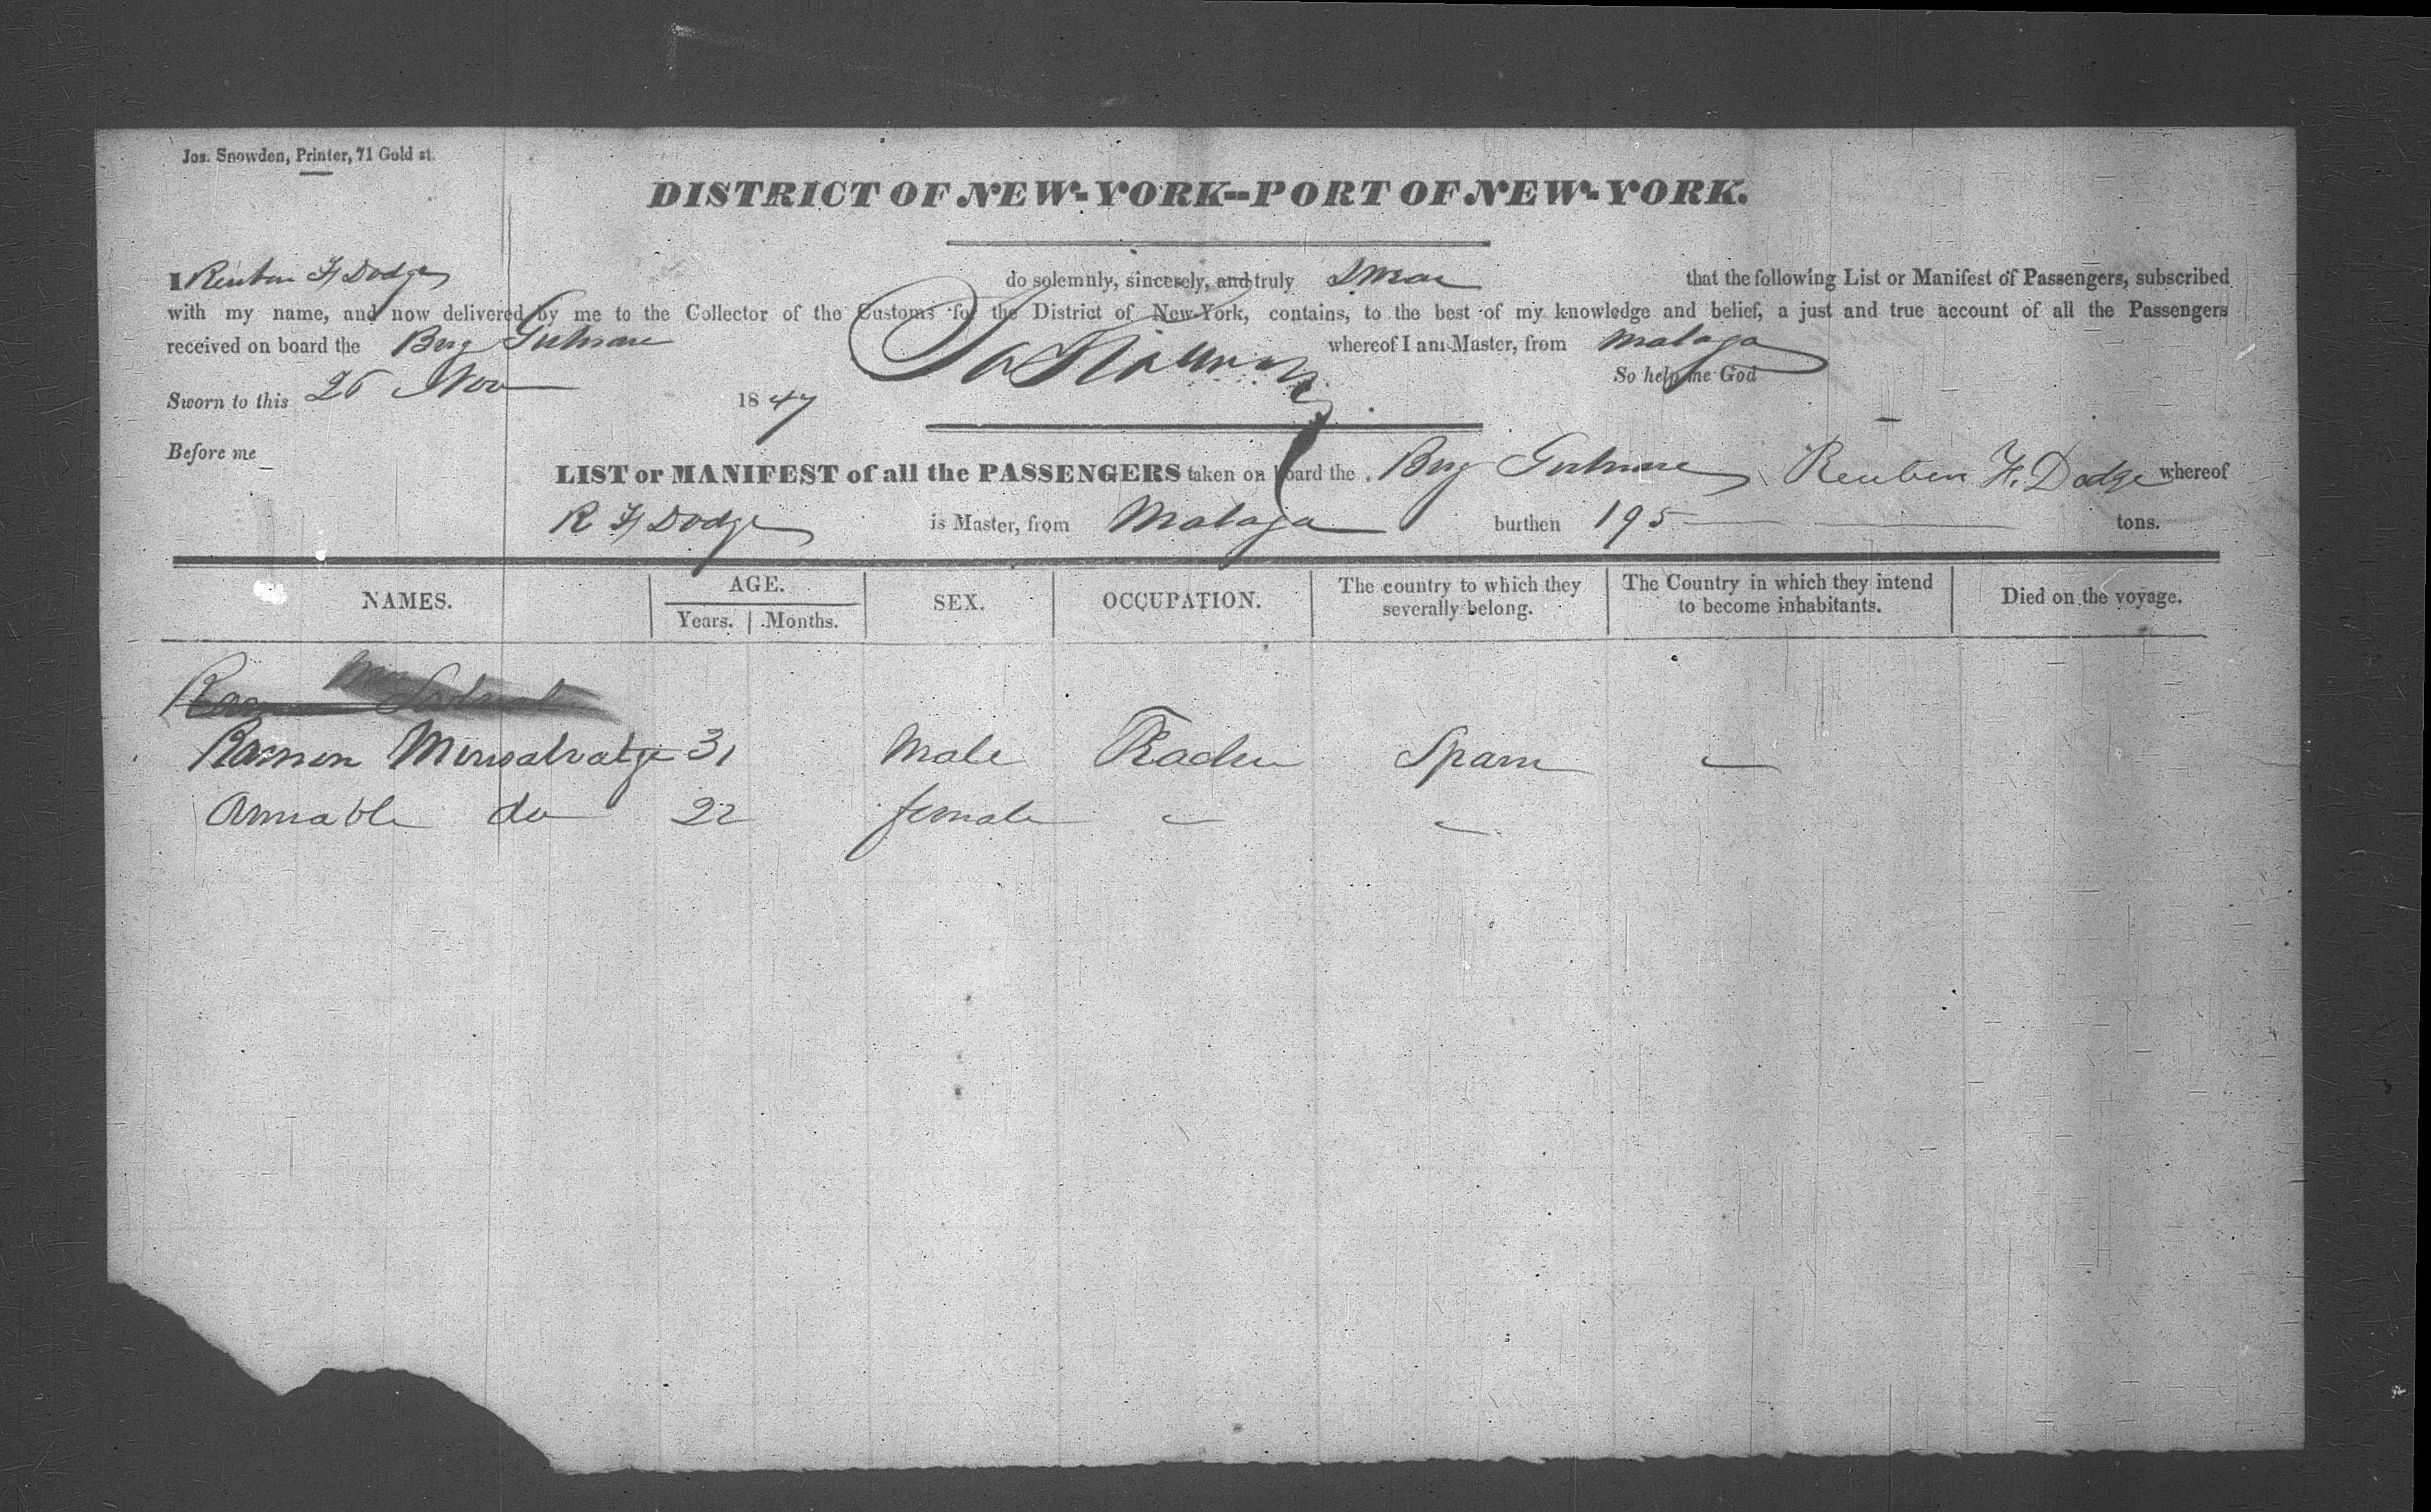 Jos. Snowden, Printer, 71 Gold st.
DISTRICT OF NEW-YORK--PORT OF NEW-YORK.
I Reuben F Dodge do solemnly, sincerely, and truly Swear that the following List or Manifest of Passengers, subscribed
with my name, and now delivered by me to the Collector of the Customs for the District of New-York, contains, to the best of my knowledge and belief, a just and true account of all the Passengers
received on board the Brig whereof I am Master, from Malaga
So help me God
Sworn to this 26 Nov 1847
Before me
LIST or MANIFEST of all the PASSENGERS taken on board the Brig Reuben F. Dodge whereof
R F Dodge is Master, from Malaga burthen 195 tons.
NAMES. AGE. Years. Months. SEX. OCCUPATION. The country to which they severally belong. The Country in which they intend to become inhabitants. Died on the voyage.
Ramon 31 Male Trader Spain -
Amiable do 22 female - -